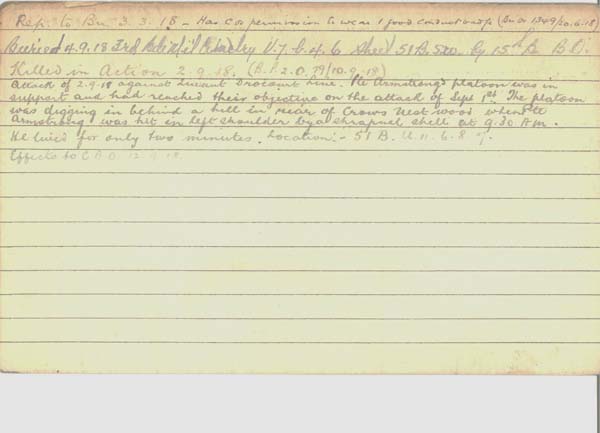 Rep. to Bn 3.3.18 - Has C.O's permission to wear 1 good conduct badge (Bn Or 1349/20.6.18)
Buried 4.9.18 3rd Cemetry V.7.C.4.6 Sheet 51B. By 15th Bn B.O.
Killed in Action 2.9.18. (B.P.2.O.79/10.9.18)
Attack of 2.9.18 against Queant Drocourt Line. Pte Armstrong's platoon was in
support and had reached their objective on the attack of Sept 1st. The platoon
was digging in behind a hill in rear of Crows Nest wood when Pte
Armstrong was hit in left shoulder by a shrapnel shell at 9.30 A.M.
He lived for only two minutes. Location:- 51 B. U.11.6.8.7.
Effects to C.A.O. 12.9.18